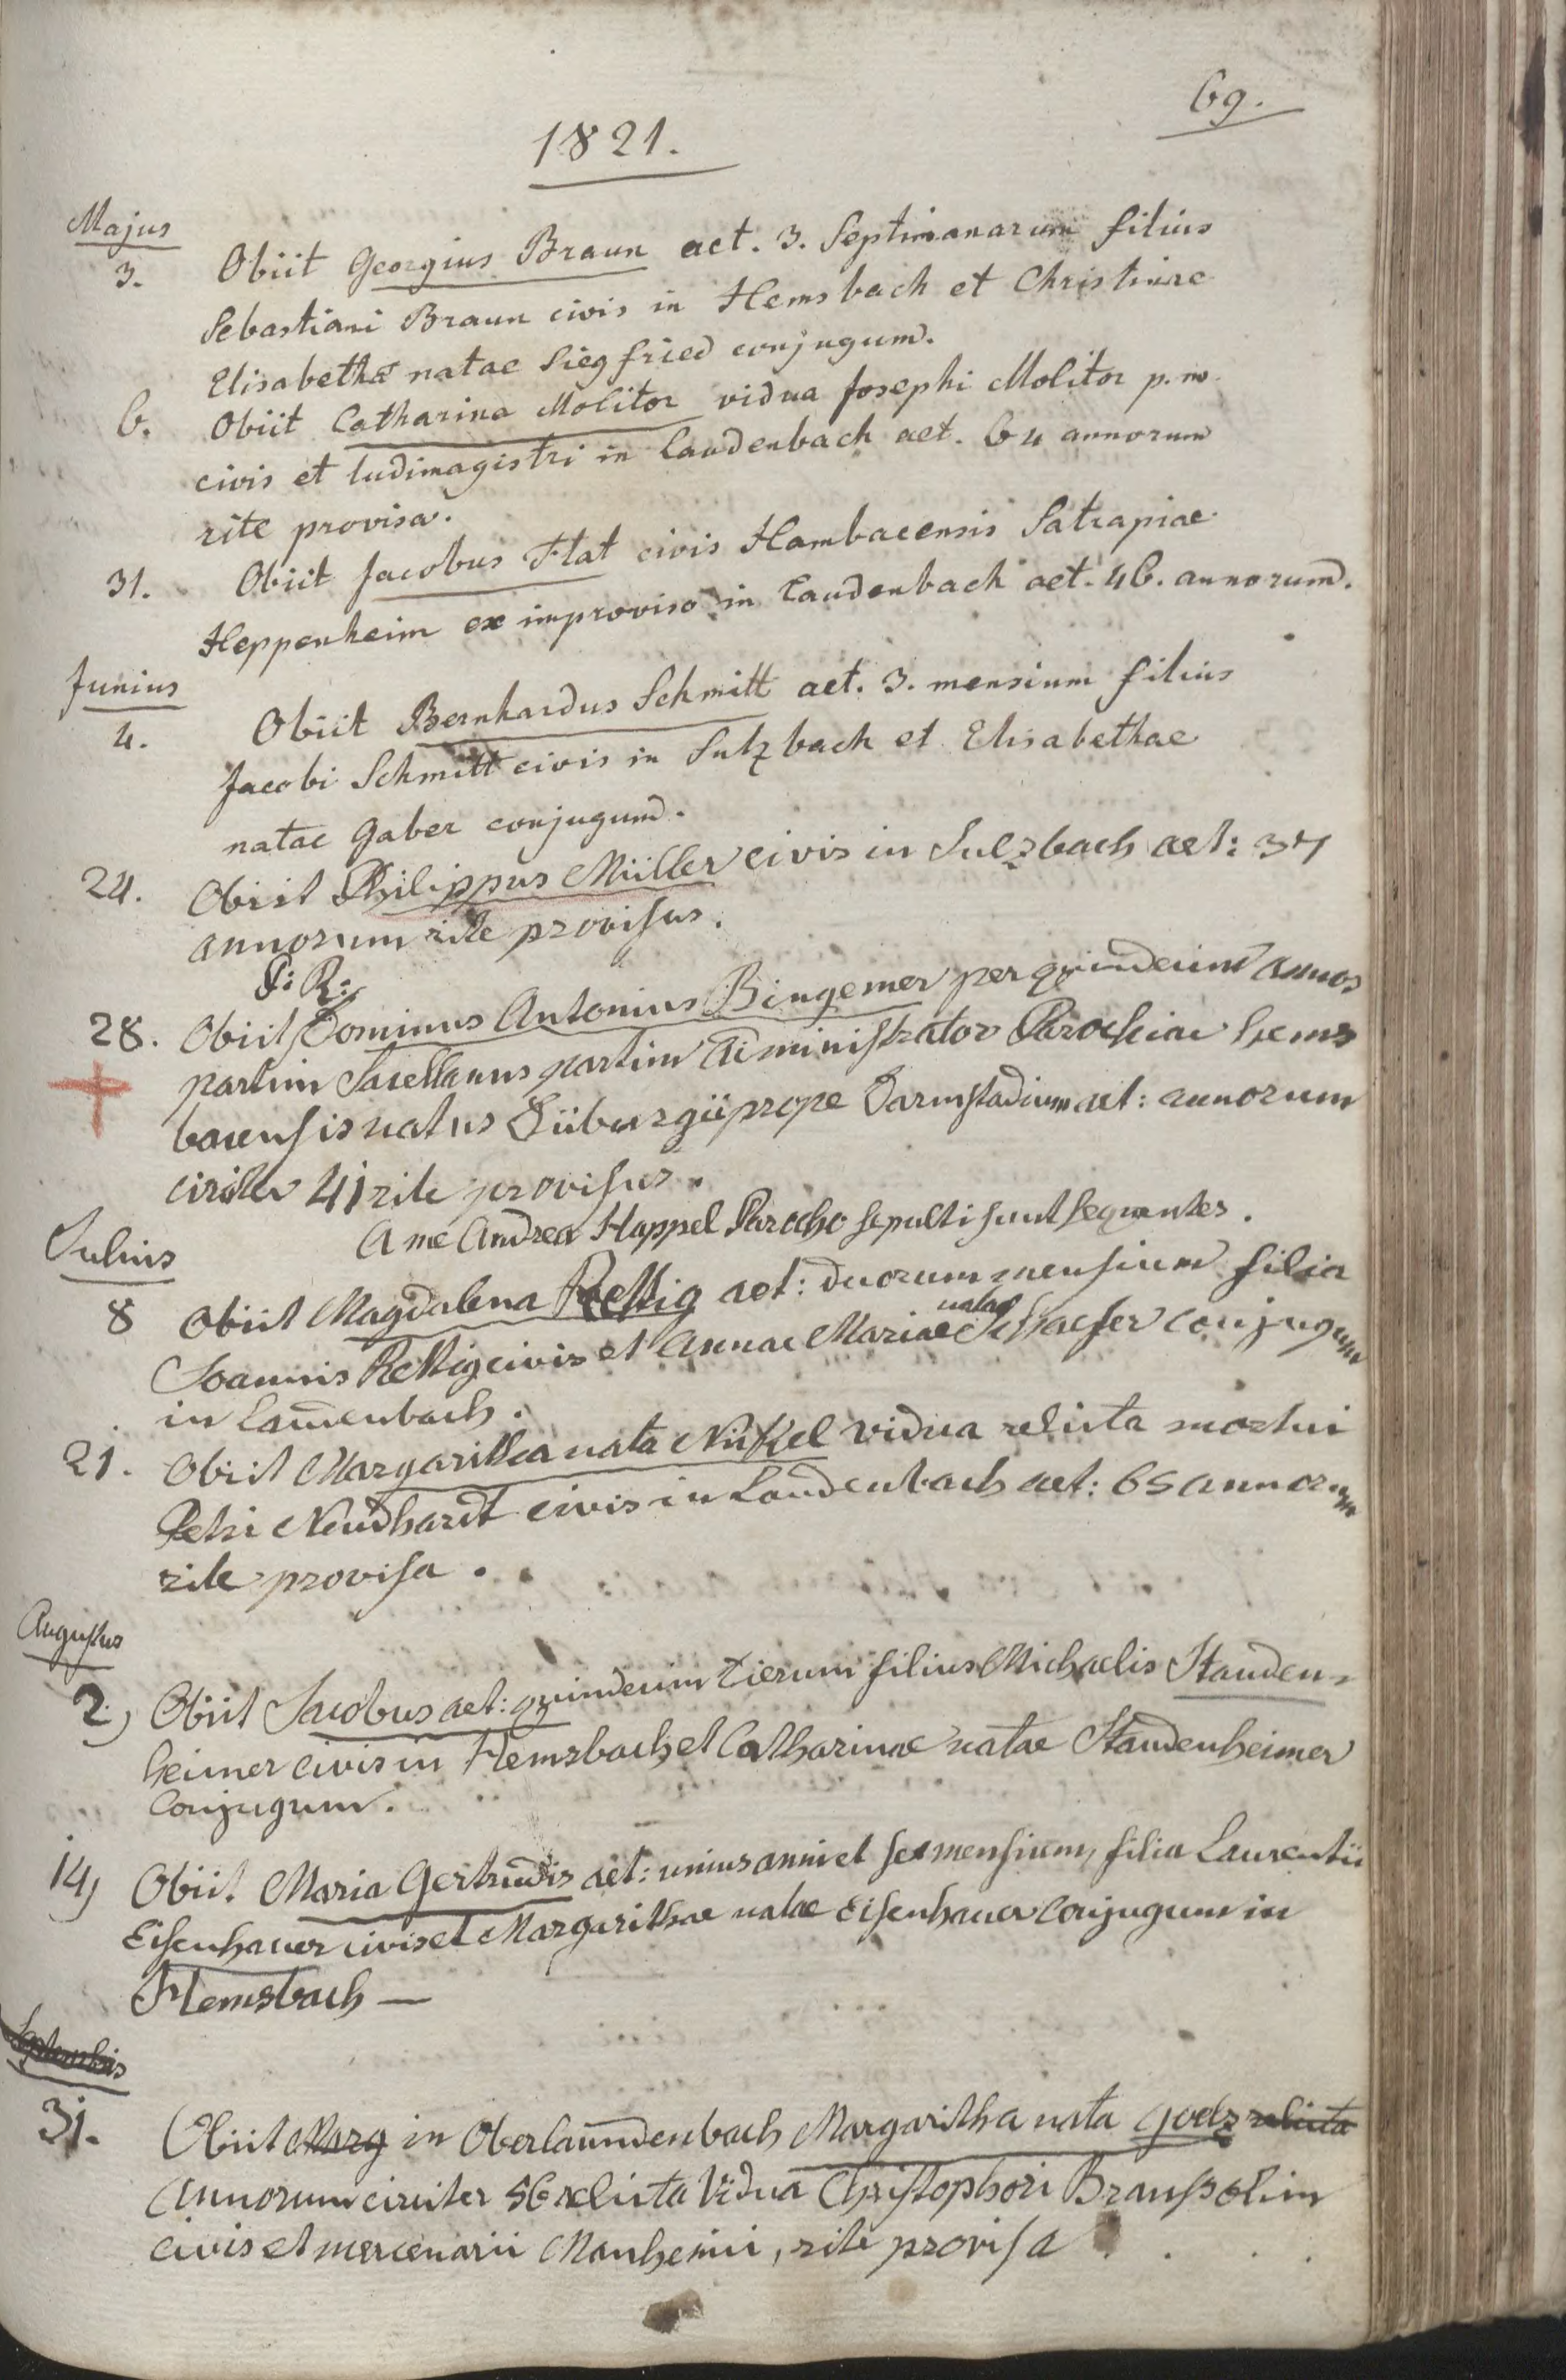 69.
1821.
Majus
3. Obiit Georgius Braun aet. 3. Septimanarum filius
Sebastiani Braun civis in Hemsbach et Christinae
Elisabetha natae Siegfried conjugum.
6. Obiit Catharina Molitor vidua Josephi Molitor p. m.
civis et ludimagistri in Laudenbach aet. 64 annorum
rite provisa.
31. Obiit Jacobus Flat civis Hambacensis Satrapiae
Heppenheim ex improviso in Laudenbach aet. 46. annorum.
Junius
4. Obiit Bernhardus Schmitt aet. 3. mensium filius
Jacobi Schmitt civis in Sulzbach et Elisabethae
natae Gaber conjugum.
24. Obiit Philippus Müller civis in Sulzbach aet: 37
annorum rite provisus.
P: R:
28. Obiit Dominus Antonius Bingemer per quindecim annos
partim Sacellanus partim Administrator Parochiae Hems
bacensis natus Diiburgii prope Darmstadium aet: annorum
circiter 41 rite provisus.
A me Andrea Happel Parocho sepulti sunt sequentes.
Julius
8 Obiit Magdalena Rettig aet: duorum mensium filia
Joannis Rettig civis et Annae Mariae natae Schaefer conjugum
in Laudenbach.
21. Obiit Margaritha nata Nickel vidua relicta mortui
Petri Neudhardt civis in Laudenbach aet: 65 annorum
rite provisa.
Augustus
2.) Obiit Jacobus aet: quindecim dierum filius Michaelis Stauden-
heimer civis in Hemsbach et Catharinae natae Staudenheimer
Conjugum.
14) Obiit Maria Gertrudis aet: unius anni et sex mensium, filia Laurentii
Eisenhauer civis et Margarithae natae Eisenhauer conjugum in
Hemsbach —
Septembris
31. Obiit Marg in Oberlaudenbach Margaritha nata Goelz relicta
Annorum circiter 56 relicta Vidua Christophori Brauss olim
civis et mercenarii Manhemii, rite provisa.